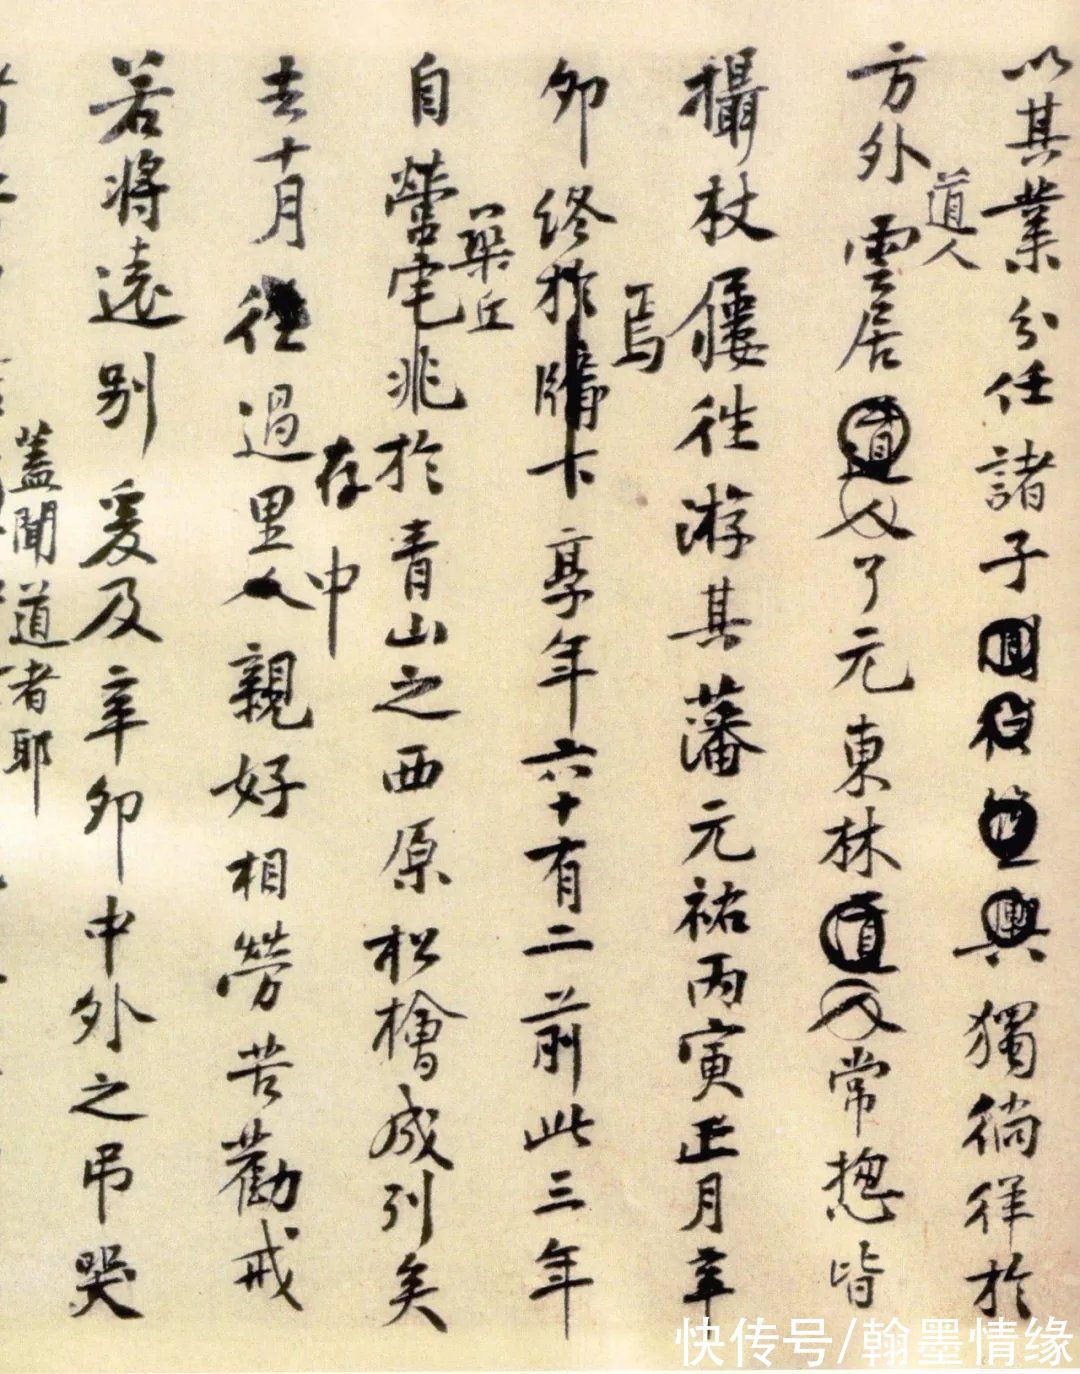 以其業分任諸子獨徜徉於
道人
方外雲居道人了元東林道人常揔皆
攝杖屨往游其藩元祐丙寅正月辛
焉
卯終於牖下享年六十有二前此三年
築丘
自營宅兆於青山之西原松檜成列矣
存中
去十月往過里人親好相勞苦勸戒
若將遠別爰及辛卯中外之弔哭
蓋聞道者耶
快传号/翰墨情缘